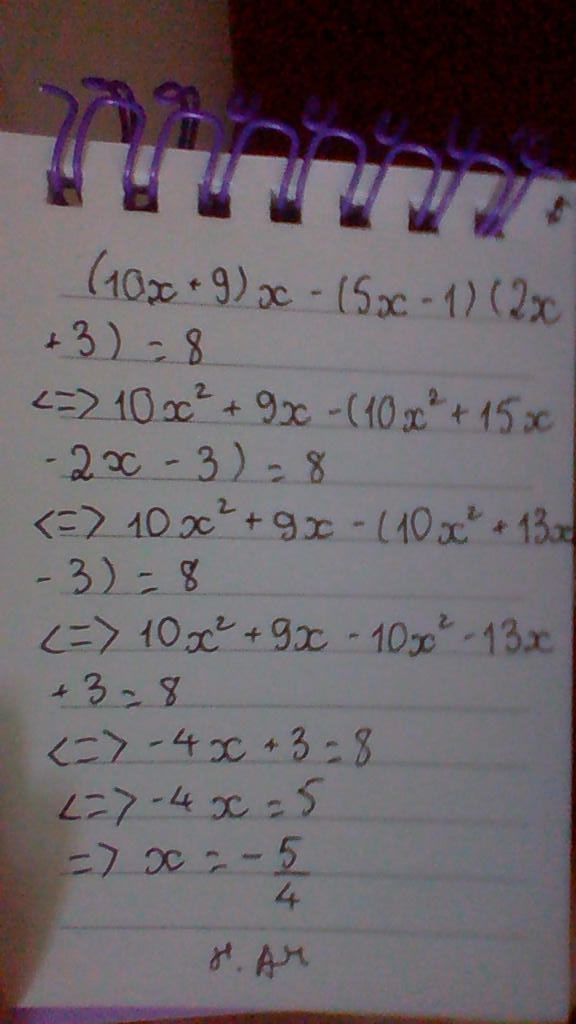 (10x + 9)x - (5x - 1)(2x
+3) = 8
<=> 10x² + 9x - (10x² + 15x
- 2x - 3) = 8
<=> 10x² + 9x - (10x² + 13x
- 3) = 8
<=> 10x² + 9x - 10x² - 13x
+ 3 = 8
<=> -4x + 3 = 8
<=> -4x = 5
=> x = -5/4